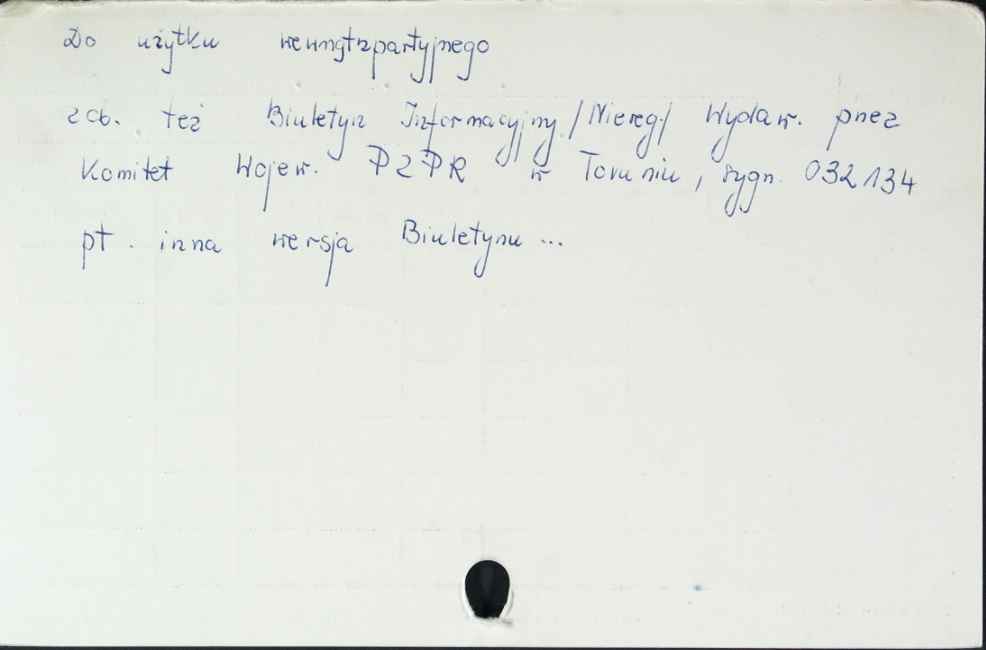 Do użytku wewnątrzpartyjnego
zob. też Biuletyn Informacyjny /Niereg./ Wydaw. przez
Komitet Wojew. PZPR w Toruniu, sygn. 032134
pt. inna wersja Biuletynu ...